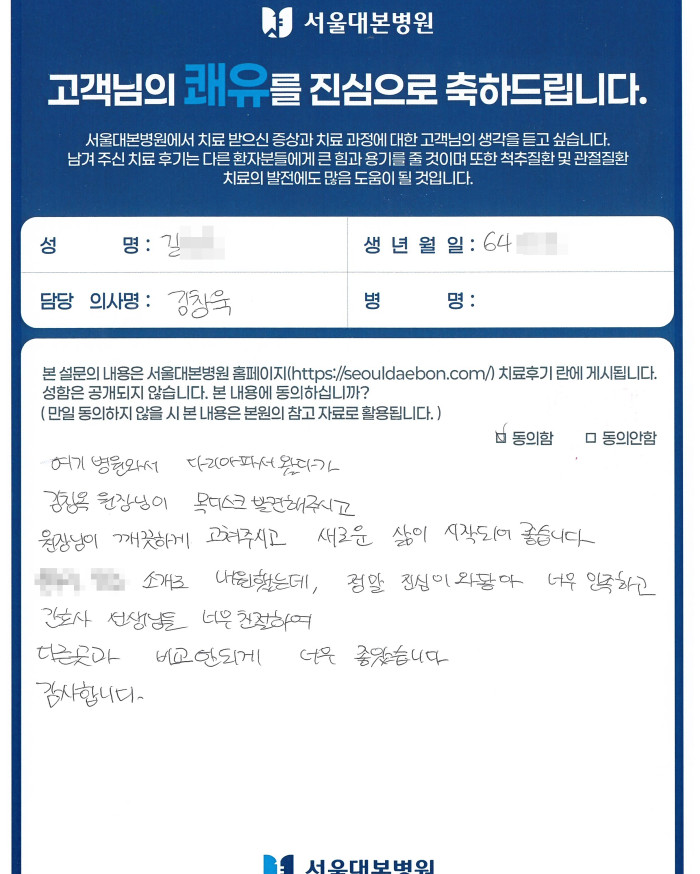 서울대본병원
고객님의 쾌유를 진심으로 축하드립니다.
서울대본병원에서 치료 받으신 증상과 치료 과정에 대한 고객님의 생각을 듣고 싶습니다.
남겨 주신 치료 후기는 다른 환자분들에게 큰 힘과 용기를 줄 것이며 또한 척추질환 및 관절질환
치료의 발전에도 많음 도움이 될 것입니다.
성 명 : 길
생 년 월 일 : 64
담당 의사명 : 김창욱
병 명 :
본 설문의 내용은 서울대본병원 홈페이지(https://seouldaebon.com/) 치료후기 란에 게시됩니다.
성함은 공개되지 않습니다. 본 내용에 동의하십니까?
( 만일 동의하지 않을 시 본 내용은 본원의 참고 자료로 활용됩니다. )
☑ 동의함 □ 동의안함
여기 병원와서 다리아파서 왔다가
김창욱 원장님이 목디스크 발견해주시고
원장님이 깨끗하게 고쳐주시고 새로운 삶이 시작되어 좋습니다
소개로 내원했는데, 정말 진심이 와닿아 너무 만족하고
간호사 선생님들 너무 친절하여
다른곳과 비교안되게 너무 좋았습니다
감사합니다.
서울대본병원